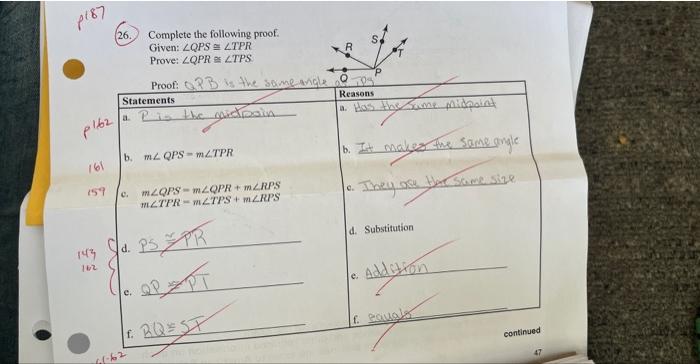 p187
26. Complete the following proof.
Given: ∠QPS ≅ ∠TPR
Prove: ∠QPR ≅ ∠TPS
R
S
T
Q
P
Proof: QPB is the same angle as
Statements
Reasons
p162
a. P is the midpoin
a. Has the same midpoint
161
b. m∠ QPS = m∠TPR
b. It makes the same angle
159
c. m∠QPS = m∠QPR + m∠RPS
m∠TPR = m∠TPS + m∠RPS
c. They are the same size
143
162
d. PS ≅ PR
d. Substitution
e. QP ≅ PT
e. Addition
f. RQ ≅ ST
f. equals
continued
47